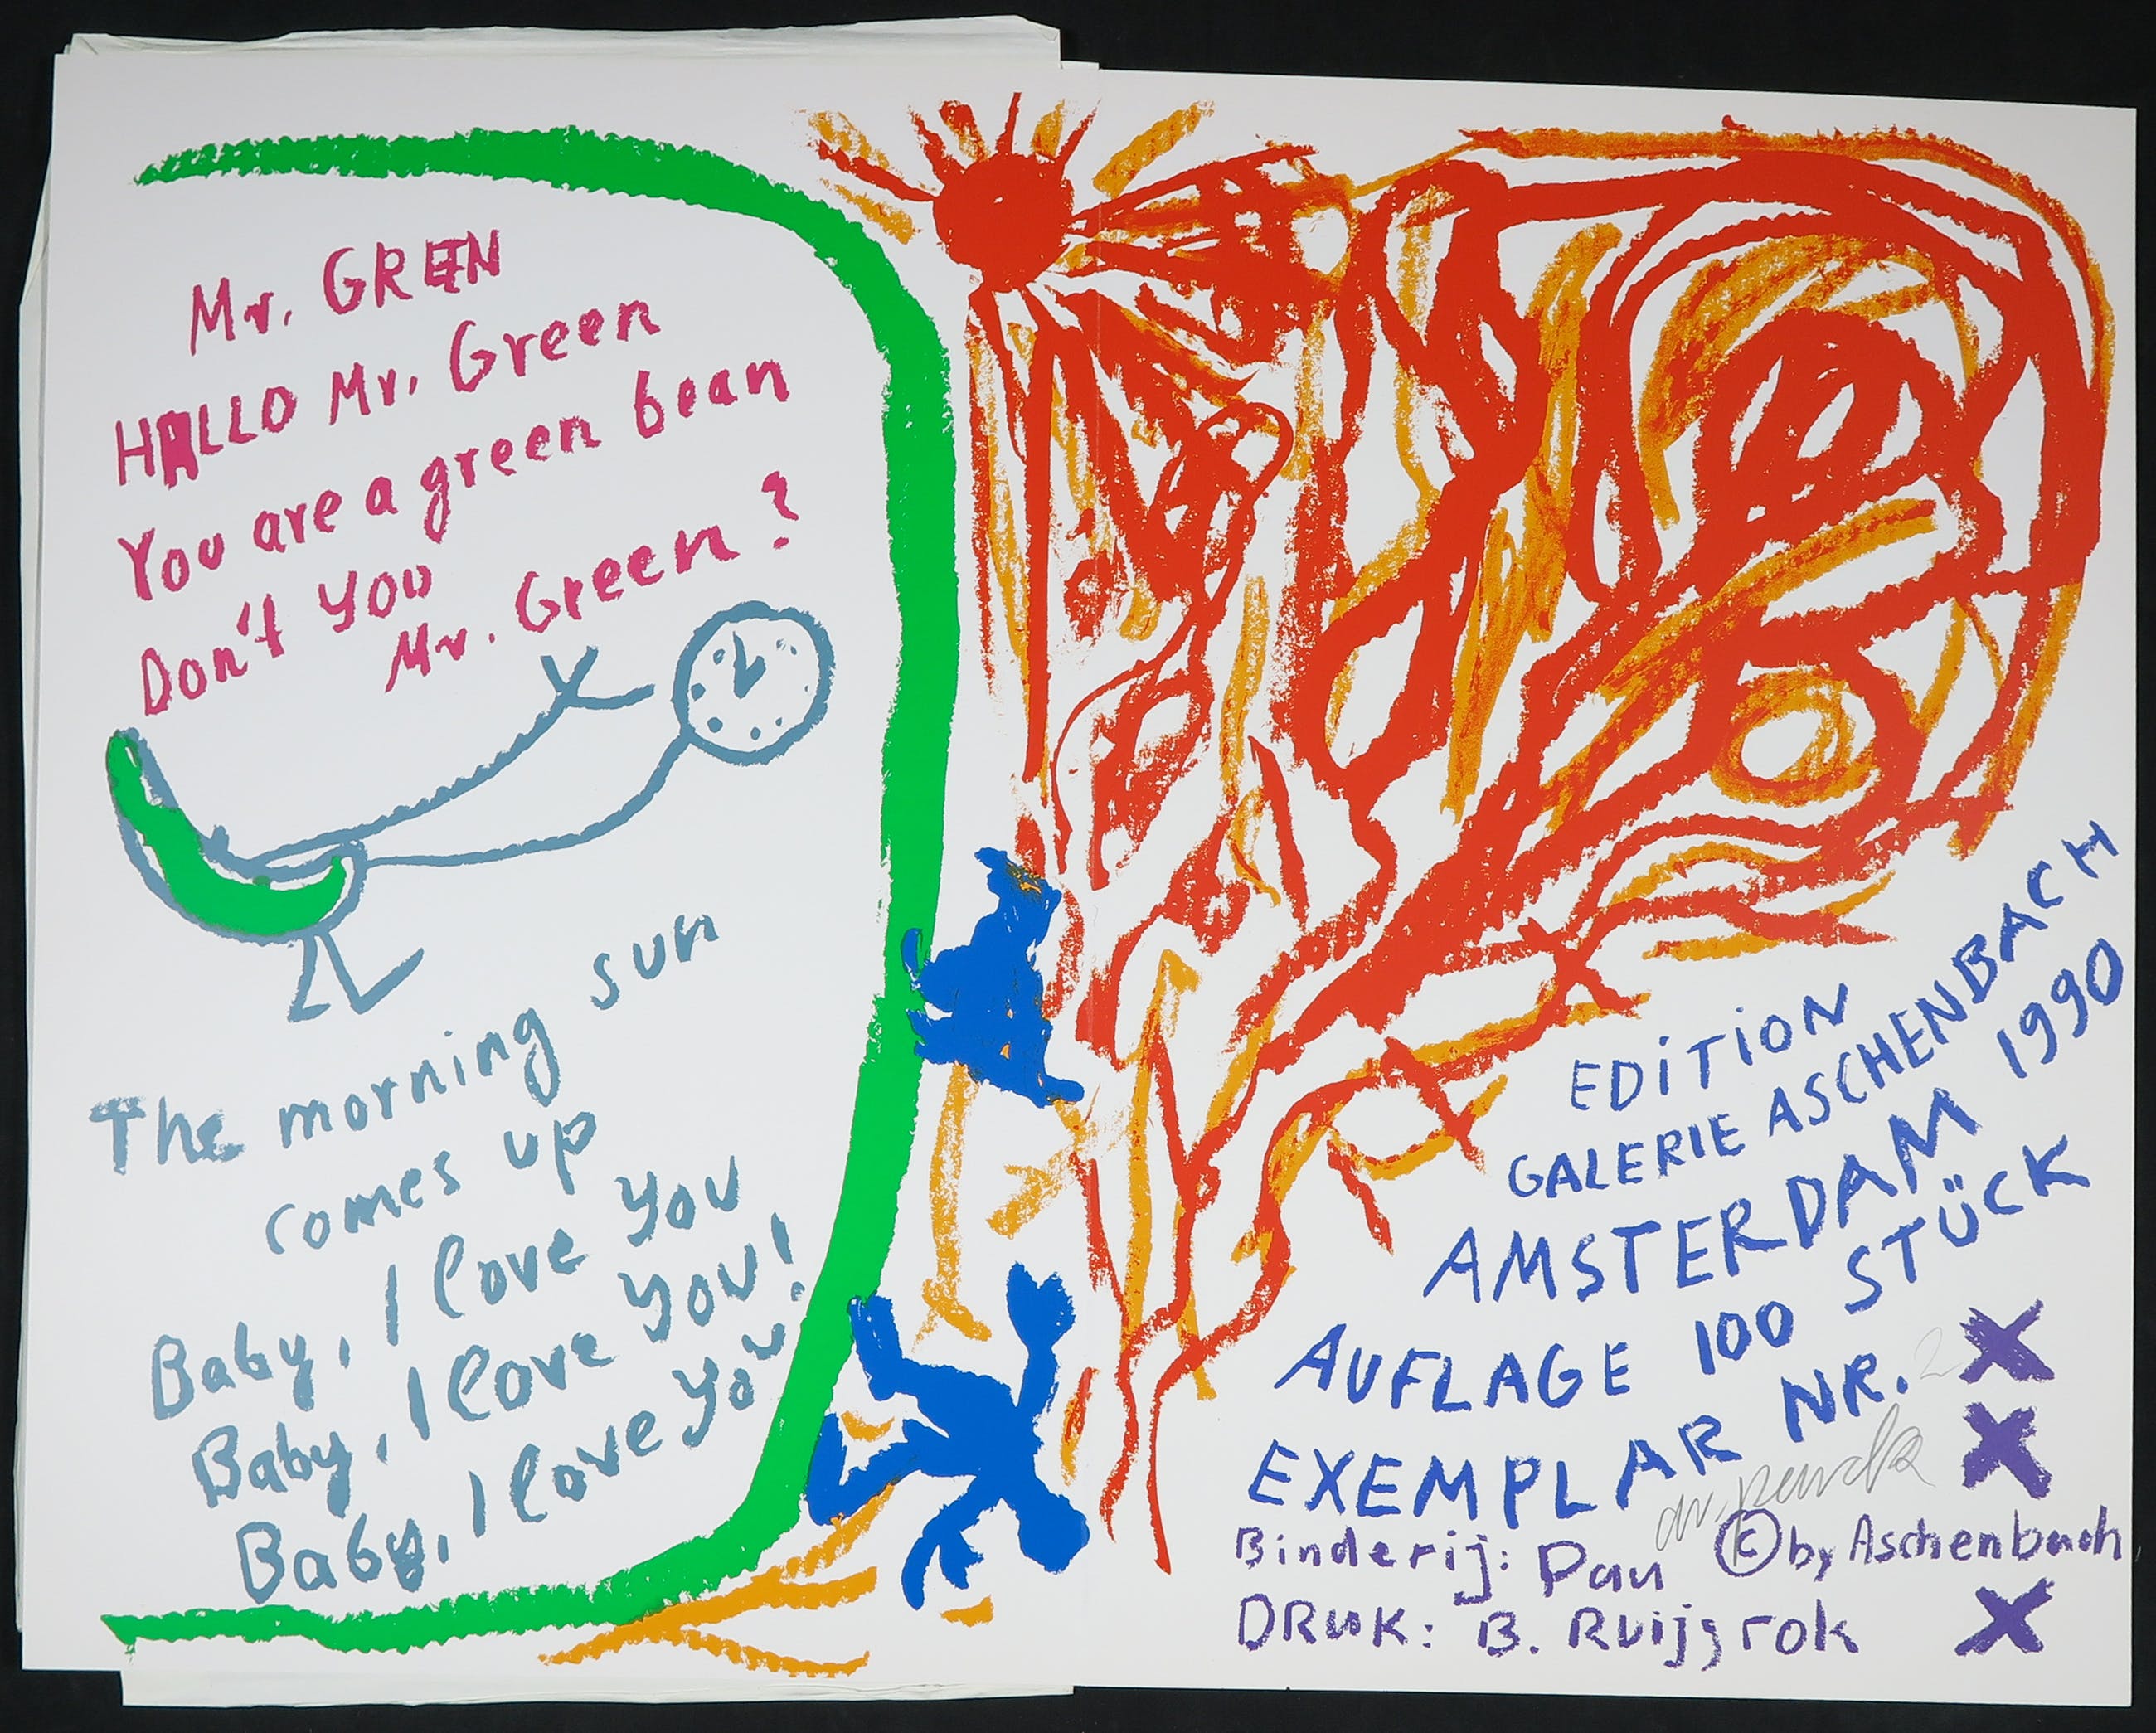 Mr. GREEN
HALLO Mr. Green
You are a green bean
Don't you
Mr. Green?
The morning sun
comes up
Baby, I love you
Baby, I love you!
Baby, I love you
EDiTiON
GALERIE ASCHENBACH
AMSTERDAM 1990
AUFLAGE 100 STÜCK
EXEMPLAR NR. 2
a.r. penck
Binderij: Pau
© by Aschenbach
DRUK: B. Ruijgrok